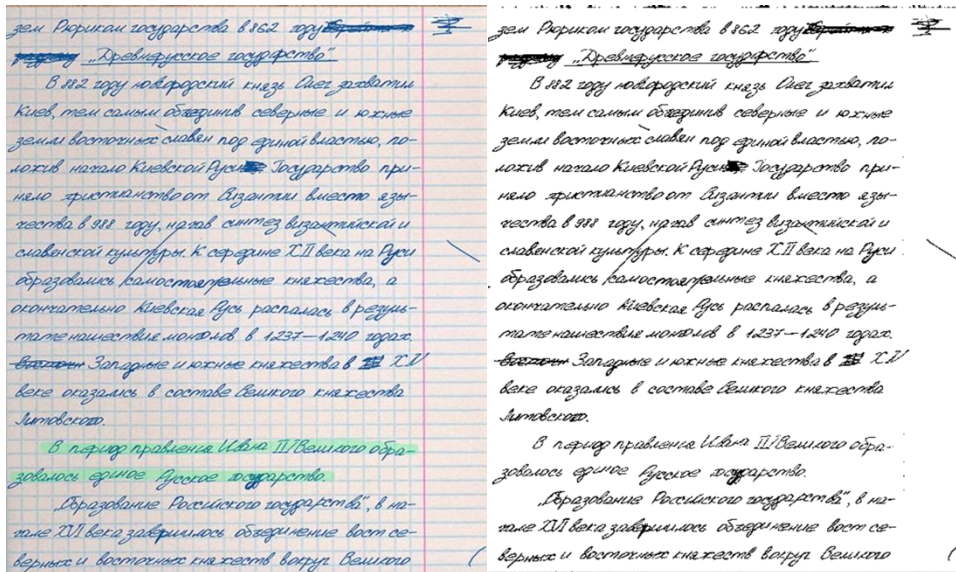 зем Рюриком государства в 862 году
"Древнерусское государство"
В 882 году новгородский князь Олег захватил
Киев, тем самым объединив северные и южные
земли восточных славян под единой властью, по-
ложив начало Киевской Руси. Государство при-
няло христианство от Византии вместо язы-
чества в 988 году, начав синтез византийской и
славянской культуры. К середине XII века на Руси
образовались самостоятельные княжества, а
окончательно Киевская Русь распалась в резуль-
тате нашествие монголов в 1237—1240 годах.
Западные и южные княжества в XIV
веке оказались в составе Великого княжества
Литовского.
В период правления Ивана III Великого обра-
зовалось единое Русское государство.
"Образование Российского государства", в на-
чале XVI века завершилось объединение вост се-
верных и восточных княжеств вокруг Великого
зем Рюриком государства в 862 году
"Древнерусское государство"
В 882 году новгородский князь Олег захватил
Киев, тем самым объединив северные и южные
земли восточных славян под единой властью, по-
ложив начало Киевской Руси. Государство при-
няло христианство от Византии вместо язы-
чества в 988 году, начав синтез византийской и
славянской культуры. К середине XII века на Руси
образовались самостоятельные княжества, а
окончательно Киевская Русь распалась в резуль-
тате нашествие монголов в 1237—1240 годах.
Западные и южные княжества в XIV
веке оказались в составе Великого княжества
Литовского.
В период правления Ивана III Великого обра-
зовалось единое Русское государство.
"Образование Российского государства", в на-
чале XVI века завершилось объединение вост се-
верных и восточных княжеств вокруг Великого